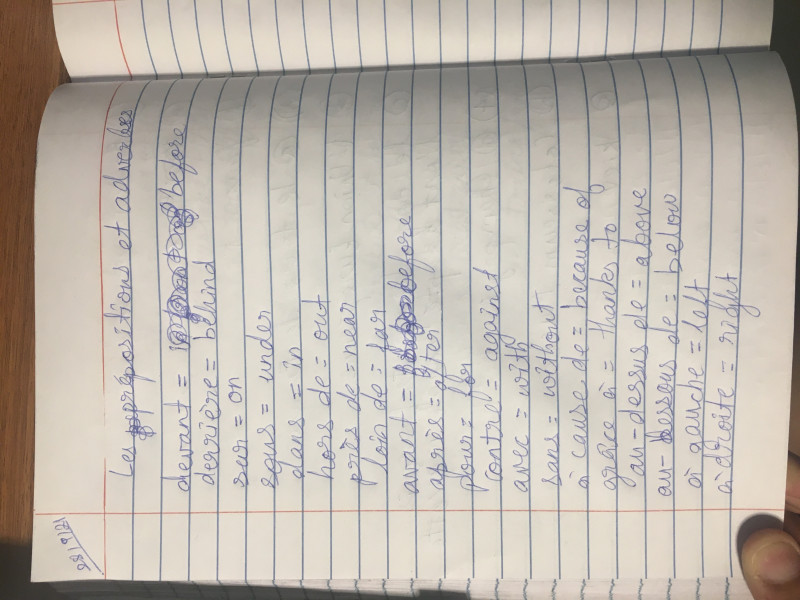 28/9/21
Les prepositions et adverbes
devant = before
derrière = behind
sur = on
sous = under
dans = in
hors de = out
près de = near
loin de = far
avant = before
après = after
pour = for
contre = against
avec = with
sans = without
à cause de = because of
grâce à = thanks to
au-dessus de = above
au-dessous de = below
à gauche = left
à droite = right